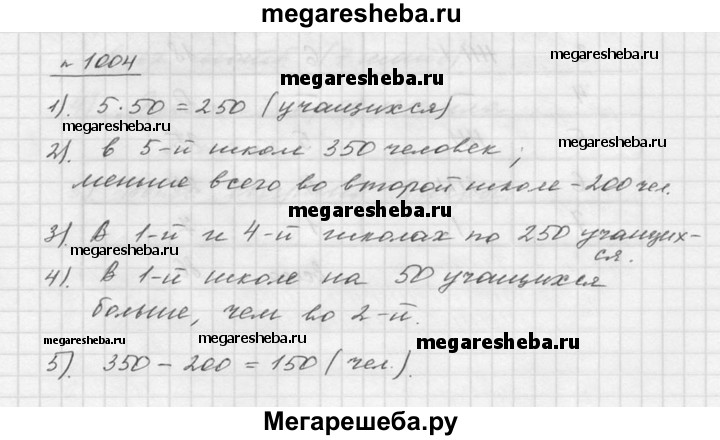 megaresheba.ru
№ 1004
megaresheba.ru
1). 5·50 = 250 (учащихся)
megaresheba.ru
2). В 5-й школе 350 человек;
megaresheba.ru
меньше всего во второй школе - 200 чел.
megaresheba.ru
3). В 1-й и 4-й школах по 250 учащих-
ся.
megaresheba.ru
4). В 1-й школе на 50 учащихся
megaresheba.ru
больше, чем во 2-й.
megaresheba.ru
megaresheba.ru
megaresheba.ru
5). 350 - 200 = 150 (чел.).
Мегарешеба.ру